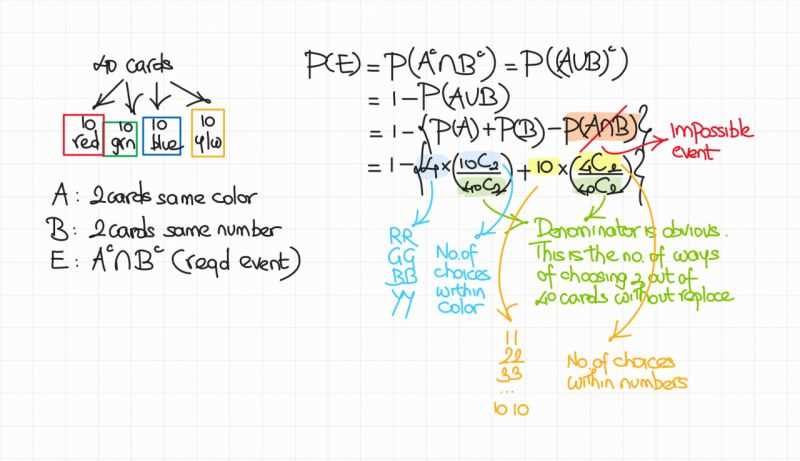 40 cards
10 red
10 grn
10 blue
10 ylw
A : 2 cards same color
B : 2 cards same number
E : Aᶜ∩Bᶜ (reqd event)
P(E) = P(Aᶜ∩Bᶜ) = P((A∪B)ᶜ)
= 1 - P(A∪B)
= 1 - {P(A) + P(B) - P(A∩B)}
= 1 - {4 × (10C2/40C2) + 10 × (4C2/40C2)}
Impossible
event
RR
GG
BB
YY
No. of
choices
within
color
Denominator is obvious.
This is the no. of ways
of choosing 2 out of
40 cards without replace
11
22
33
...
10 10
No. of choices
within numbers